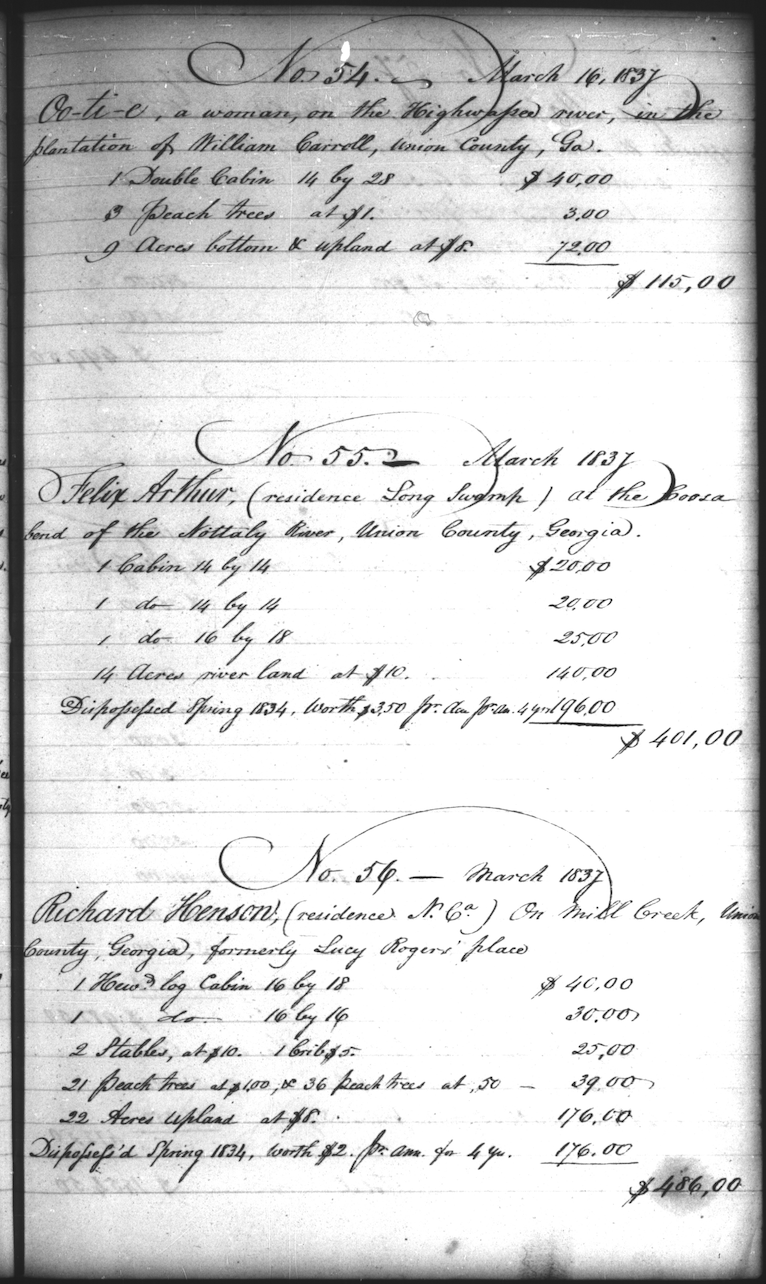 No. 54. March 16, 1837
Oo-ti-e, a woman, on the Highwassee river, in the
plantation of William Carroll, Union County, Ga.
1 Double Cabin 14 by 28 $40,00
3 Peach trees at $1. 3.00
9 Acres bottom & upland at $8. 72.00
$115,00
No. 55. March 1837
Felix Arthur, (residence Long Swamp) at the Coosa
bend of the Nottaly River, Union County, Georgia.
1 Cabin 14 by 14 $20,00
1 do 14 by 14 20,00
1 do 16 by 18 25,00
14 Acres river land at $10. 140,00
Dispossessed Spring 1834, worth $3,50 pr. Acr pr. an. 4 yrs 196.00
$401,00
No. 56. — March 1837
Richard Henson, (residence N. Ca.) On Mill Creek, Union
County, Georgia, formerly Lucy Rogers' place
1 Hewd. log Cabin 16 by 18 $40,00
1 do. 16 by 16 30.00
2 Stables, at $10. 1 Crib $5. 25,00
21 Peach trees at $1,00, & 36 Peach trees at ,50 — 39.00
22 Acres Upland at $8. 176,00
Dispossess'd Spring 1834, worth $2. pr. ann. for 4 yrs. 176.00
$486,00